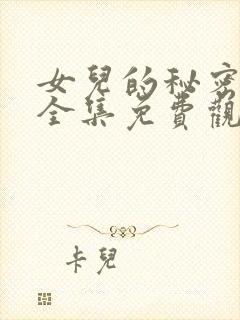 女兒的秘密
全集免費觀
卡兒